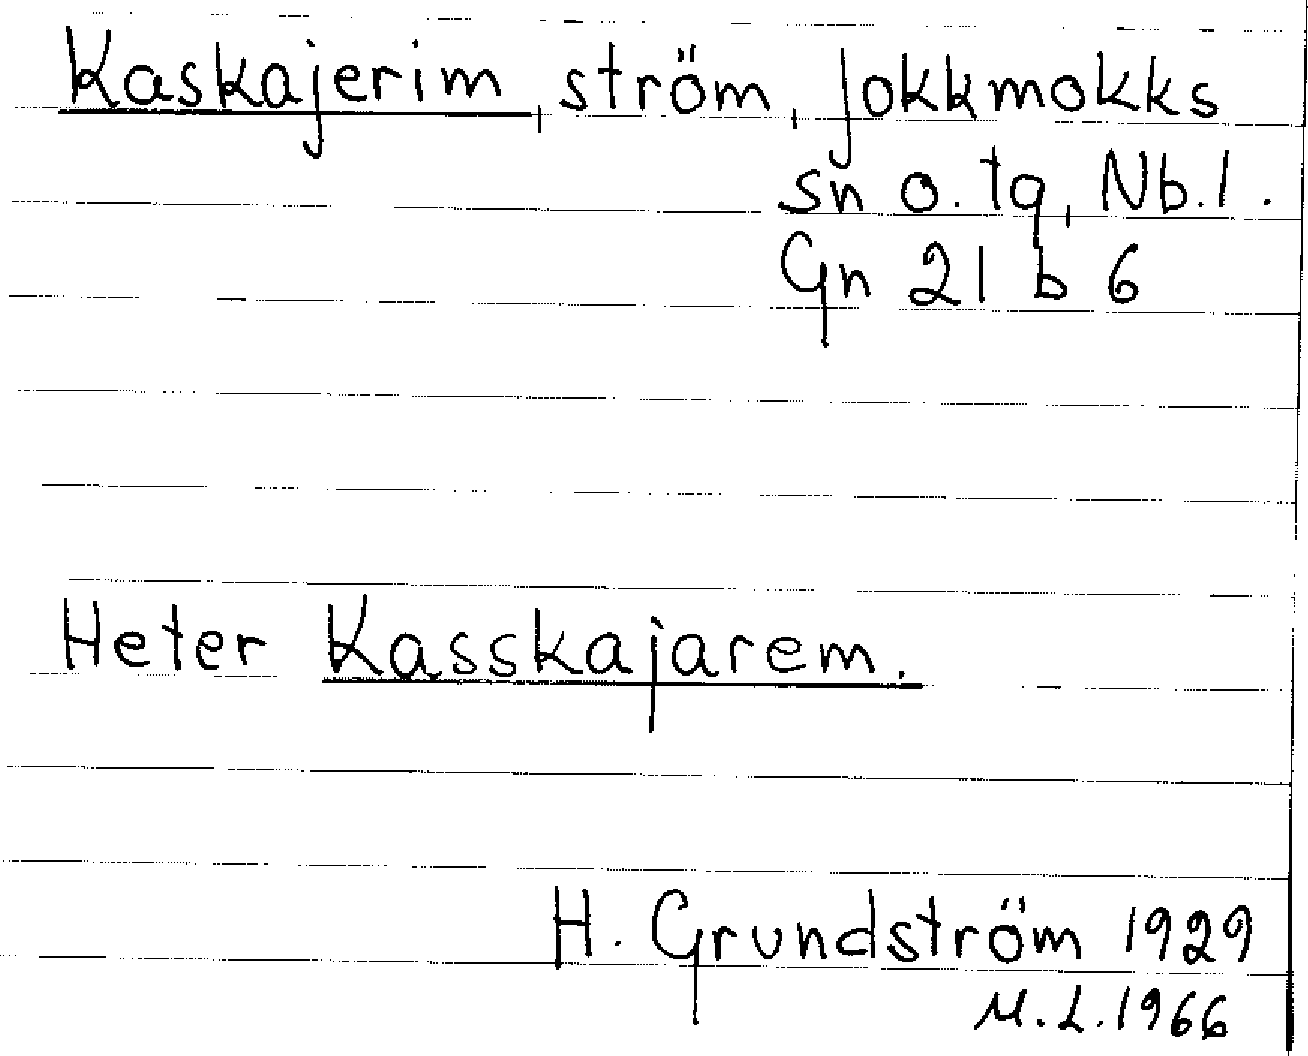 Kaskajerim, ström, Jokkmokks
sn o. tg, Nb.l.
Gn 21 b 6
Heter Kasskajarem.
H. Grundström 1929
M.L.1966